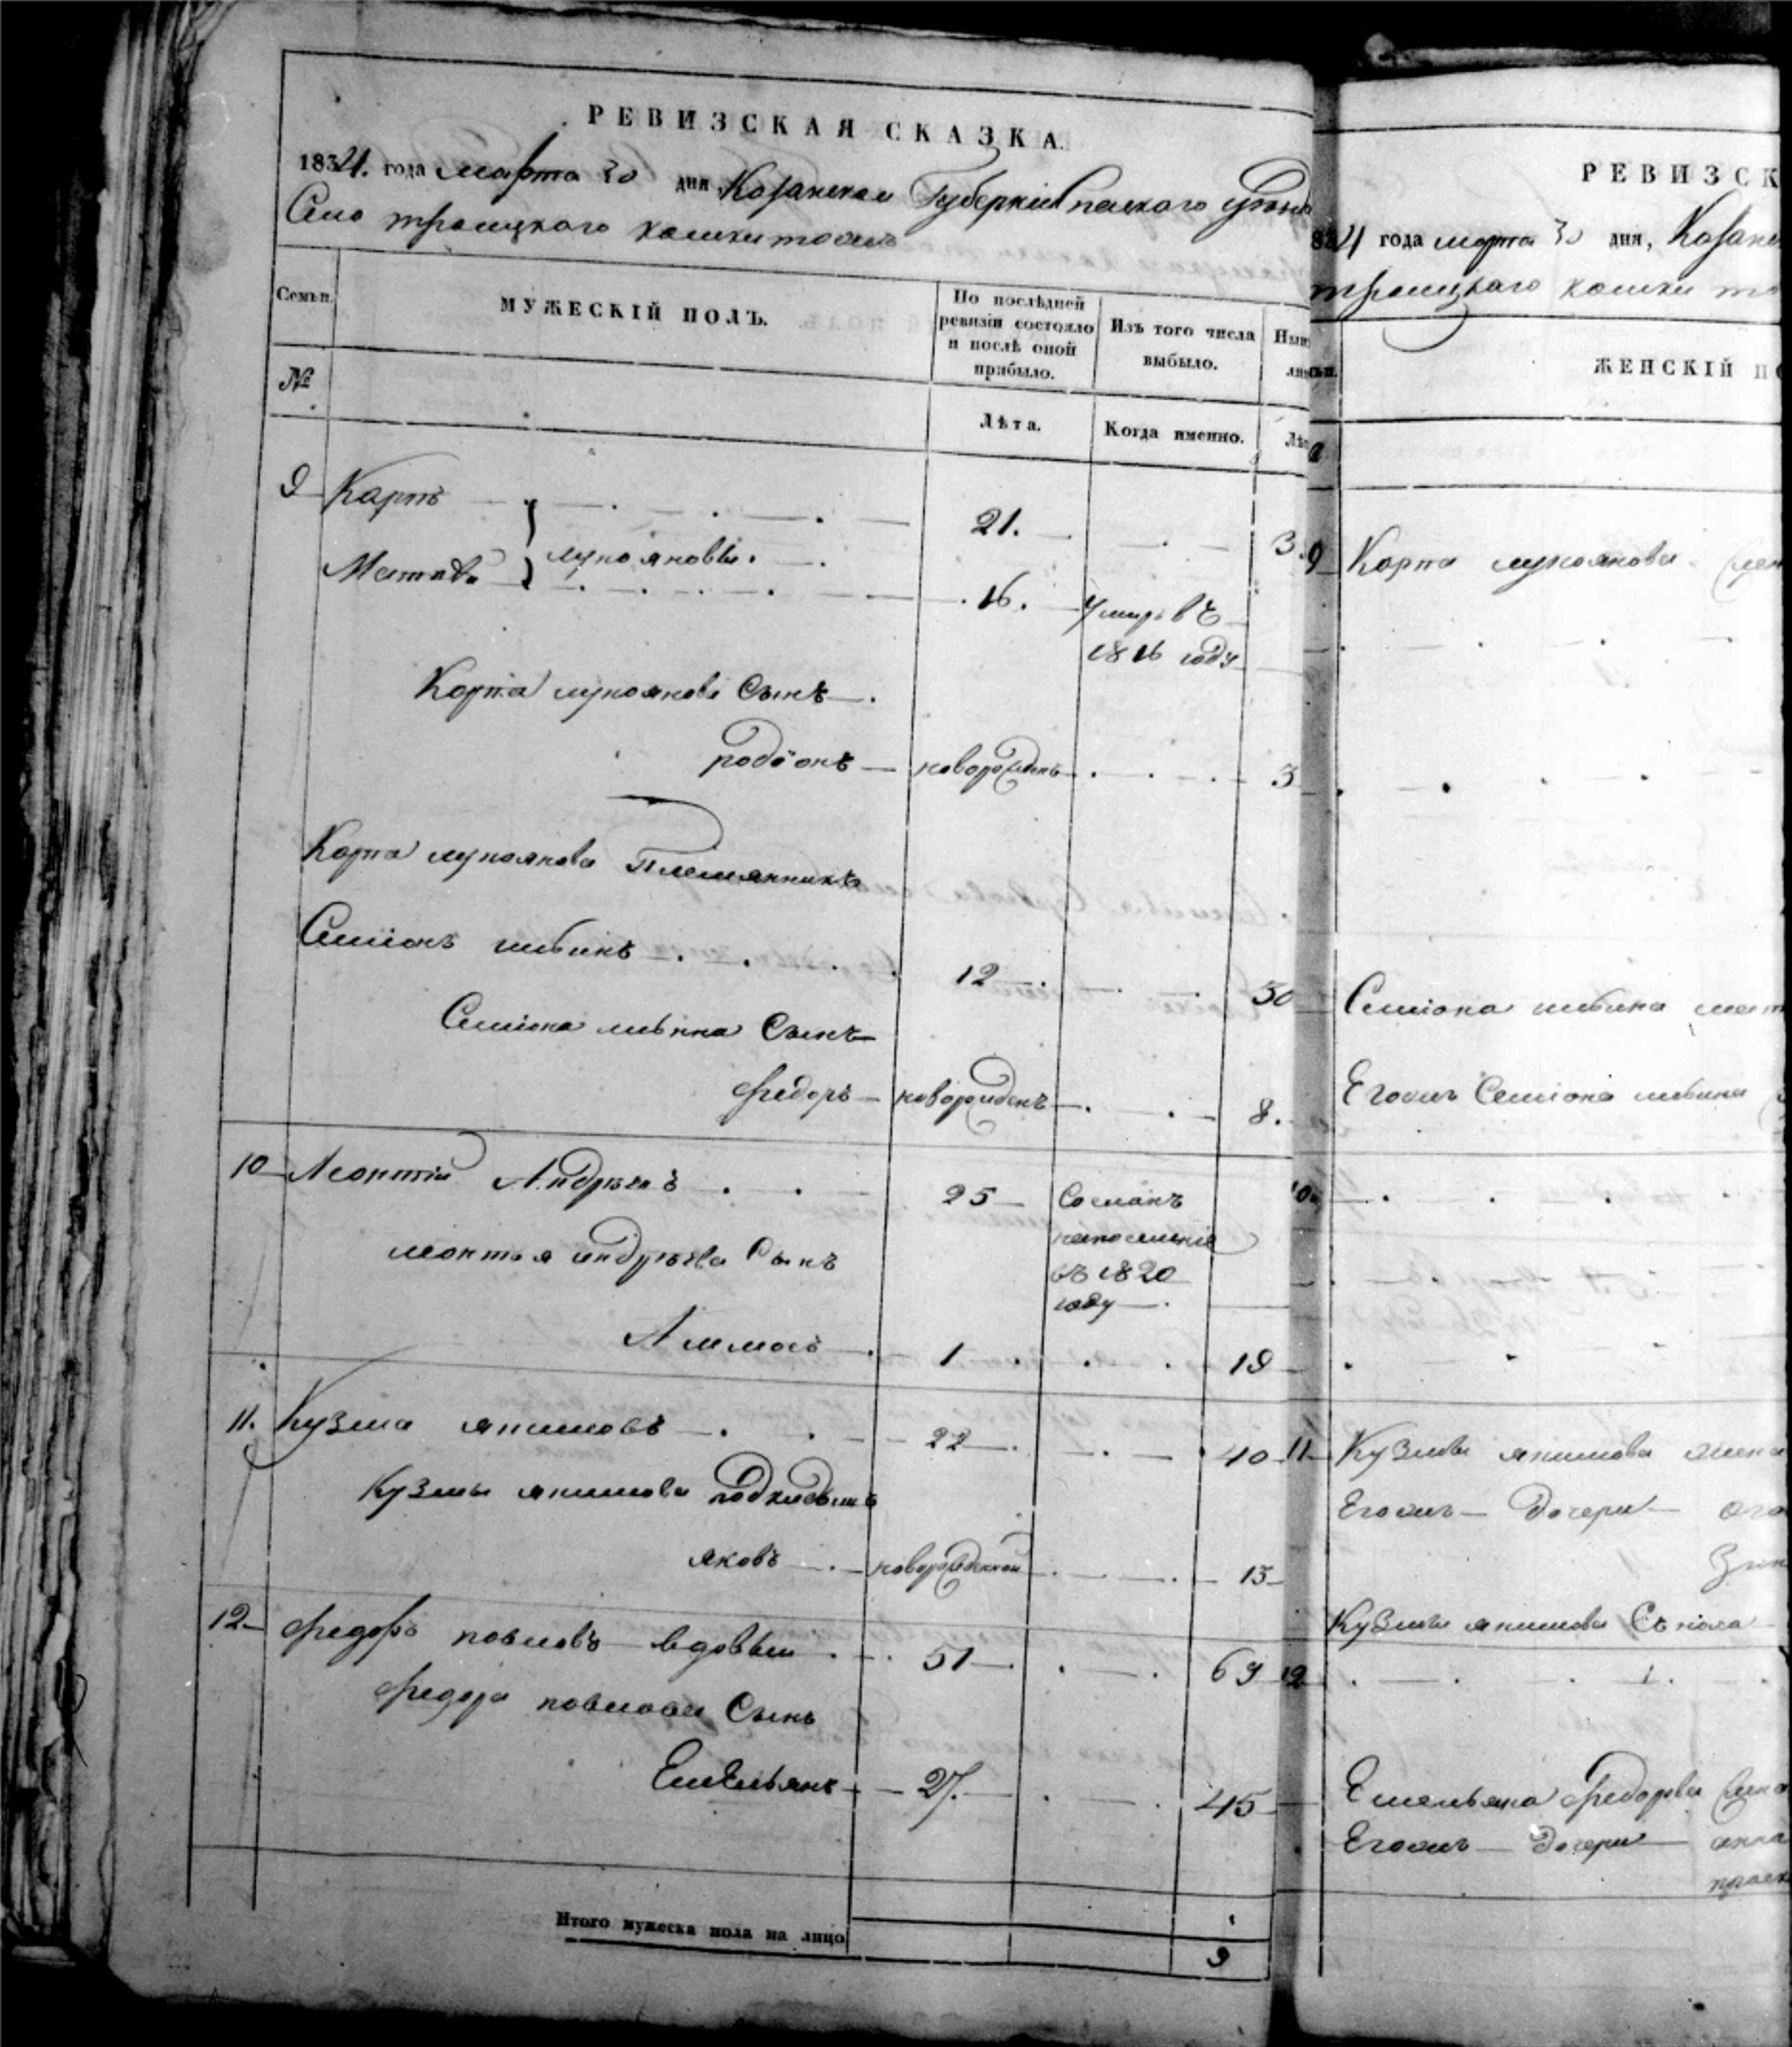 РЕВИЗСКАЯ СКАЗКА.
1834. года марта 30 дня, Казанской Губерніи Спаского уѣзда
Село троицкаго
Семьи.
МУЖЕСКІЙ ПОЛЪ.
По послѣдней ревизіи состояло и послѣ оной прибыло.
Изъ того числа выбыло.
№
Лѣта.
Когда именно.
9 Карпъ 21.
лукояновы.
Матвѣй 16. умеръ въ
1816 году
Карпа лукоянова Сынъ
родіонъ новорожденъ 3
Карпа лукоянова Племянникъ
Семіонъ 12 30
Семіона Сынъ
федоръ новорожденъ 8.
10 Леонтій Андрѣевъ 25 Сосланъ
на поселеніе
въ 1820
году
леонтья андрѣева Сынъ
Аммосъ 1 19
11. Кузма якимовъ 22 40
Кузмы якимова подкидышъ
яковъ новорожденной 13
12 федоръ павловъ вдовый 51 69
федора павлова Сынъ
Емельянъ 27. 45
Итого мужеска пола на лицо
9
РЕВИЗСК
34 года марта 30 дня, Казанс
троицкаго
ЖЕНСКІЙ ПО
9 Карпа лукоянова
Семіона
Егожъ Семіона
10
11 Кузмы якимова жена
Егожъ Дочери
Кузмы якимова
12
Емельяна федорова жена
Егожъ Дочери анна